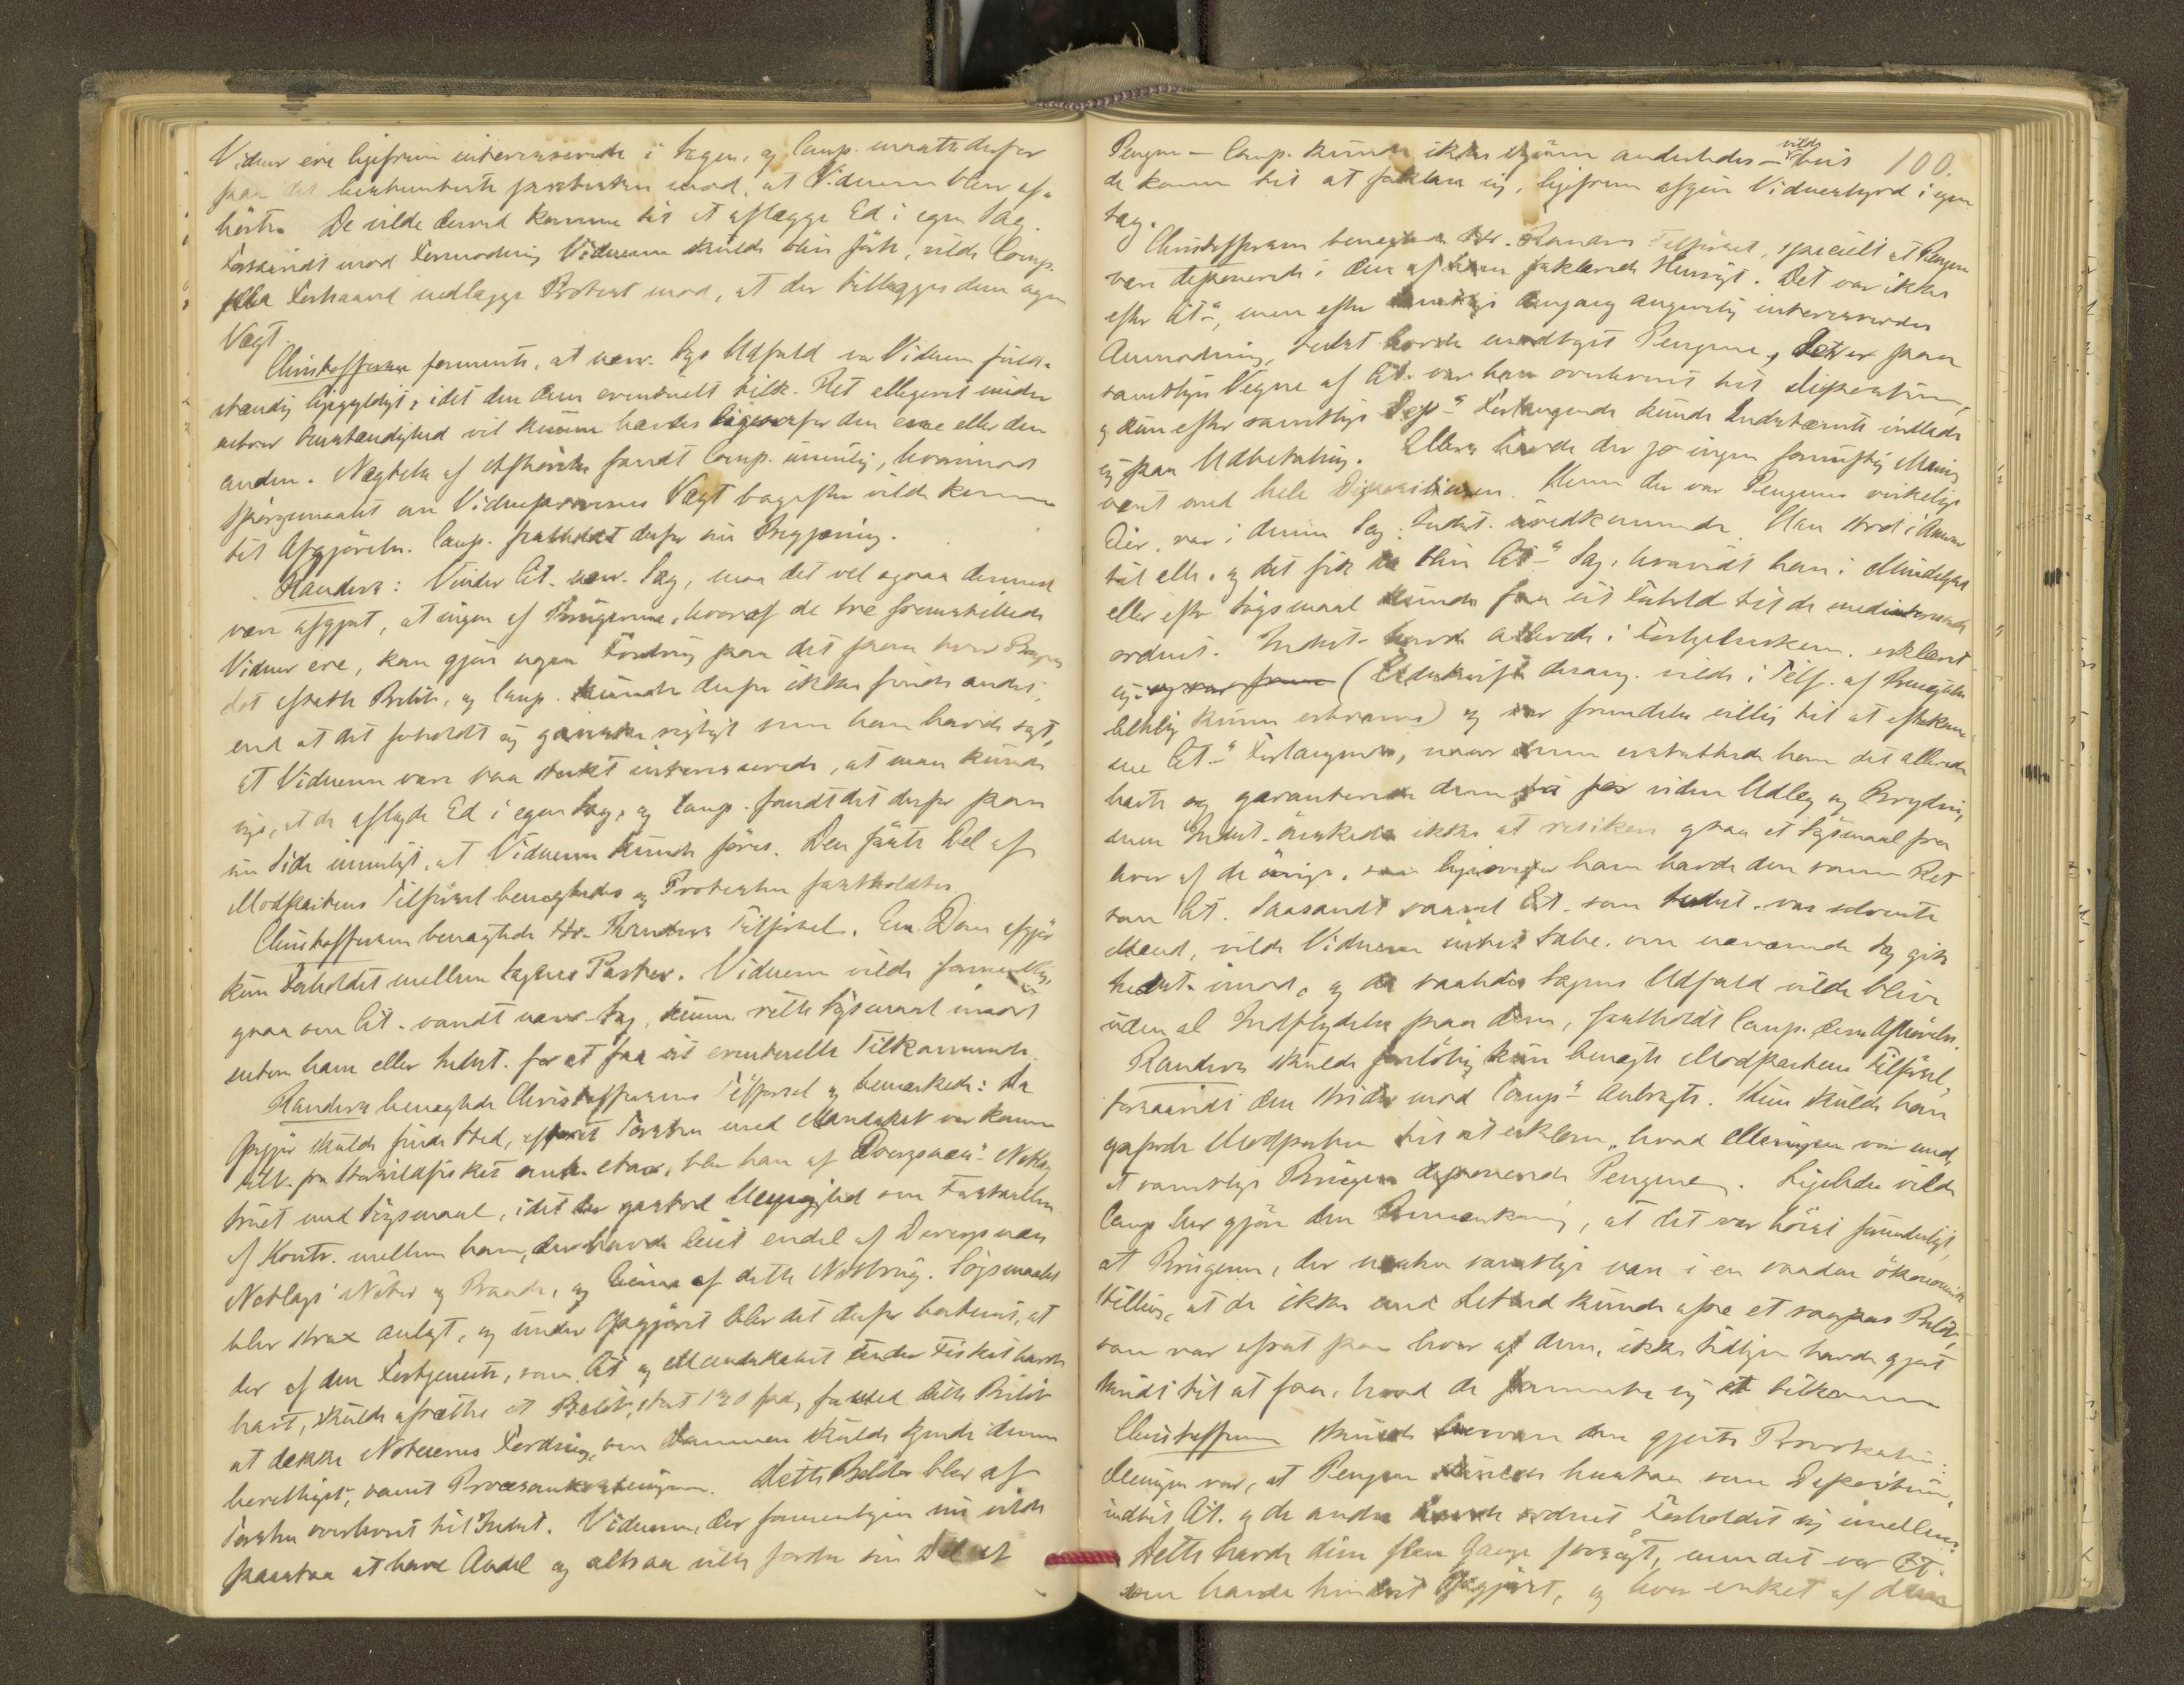 Vidner ere ligefrem interesserede i Sagen, og Comp. maatte derfor
paa det bestemteste protestere mod, at Vidnerne blev af-
hørte. De vilde derved komme til at aflægge Ed i egen Sag.
Forsaavidt mod Formodning Vidnerne skulde blive førte, vilde Comp.
paa Forhaand nedlægge Protest mod, at der tillægges dem nogen
Vægt.
Christoffersen formente, at nærv. Sags Udfald var Vidnerne fuld-
stændig ligegyldigt, idet den dem eventuelt tilk. Ret allegeret under
enhver Omstændighed vil kunne hævdes ligeoverfor den ene eller den
anden. Nægtelse af Afhørelse fandt Comp. umulig, hvorimod
Spørgsmaalet om Vidneprovenes Vægt bagefter vilde komme
til Afgjørelse. Comp. fastholdt derfor sin Begjæring.
Randers: Vinder Cit. nærv. Sag, maa det vel ogsaa dermed
være afgjort, at ingen af Brugerne, hvoraf de tre fremstillede
Vidner ere, kan gjøre nogen Fordring paa det paa hver Bruger
det afsatte Beløb, og Comp. kunde derfor ikke finde andet,
end at det forholdt sig ganske rigtigt som han havde sagt,
at Vidnerne vare saa stærkt interesserede, at man kunde
sige, at de aflagde Ed i egen Sag, og Comp. fandt det derfor paa
sin Side umuligt, at Vidnerne kunde føres. Den førte Del af
Modpartens Tilførsel benægtedes og Protesten fastholdtes.
Christoffersen benægtede Hr. Randers Tilførsel. En Dom afgjør
kun Forholdet mellem Sagens Parter. Vidnerne vilde formentlig,
ogsaa om Cit. vandt nærv. Sag, kunne rette Søgsmaal imod
enten ham eller Indst. for at faa sit eventuelle Tilkommende.
Randers benægtede Christoffersens Tilførsel og bemærkede: Da
Opgjør skulde finde Sted, efterat Torsten med Mandskab var kommen
tilb. fra Storsildfisket, blev han af Notlag
truet med Søgsmaal, idet der opstod Uenighed om Fastsættelsen
af Kontr. mellem ham, der havde leiet endel af
Notlags Nøter og Baade, og Eierne af dette Notbrug. Søgsmaalet
blev strax anlagt, og under Opgjøret blev det derfor bestemt, at
der af den Fortjeneste, som Cit. og Mandskabet under Fisket havde
havt, skulde afsættes et Beløb, for med dette Beløb
at dække Noteiernes Fordring, om Dommen skulde kjende denne
berettiget, samt Procesomkostningerne. Dette Beløb blev af
Torsten overleveret til Indst. Vidnerne, der formentligen nu vilde
paastaa at have Andel og altsaa ville fordre sin Del af
100.
Pengene — Comp. kunde ikke skjønne anderledes — vilde hvis
de komme til at forklare sig, ligefrem afgive Vidnesbyrd i egen
Sag.
Christoffersen benægtede Hr. Randers Tilførsel, specielt at Pengene
vare deponerede i den af ham forklarede Hensigt. Det var ikke
efter Cit.s, men efter samtlige Anmodning, Indst. havde modtaget Pengene, Det er paa
samtliges Vegne af Cit. var ham overleveret til Deposition,
og kun efter samtlige Dep.s Forlangende kunde Indstævnte indlade
sig paa Udbetaling. Ellers havde der jo ingen fornuftig Mening
været med hele Dispositionen. Hvem der var Pengenes virkelige
Eier, var i denne Sag Indst. uvedkommende. Han stod i Ansvar
til alle, og det fik da blive Cit.s Sag, hvorvidt han i Mindelighed
eller efter Søgsmaal kunde faa sit Forhold til de medinteresserede
ordnet. Indst. havde allerede i Forligelseskom. erklæret
sig (Udskrift desang. vilde i Tilf. af Benægtelse
kunne erhverves) og var fremdeles villig til at efterkom-
me Cit.s Forlangende, naar denne erstattede ham det allerede
havte og garanterede dem for videre Udlæg og Bryderi,
men Indst. ønskede ikke at resikere ogsaa et Søgsmaal fra
hver af de øvrige, som ligeoverfor ham havde den samme Ret
som Cit. Saasandt saavel Cit. som Indst. var solvente
Mænd, vilde Vidnerne intet tabe, om nærværende Sag gik
Indst. imod, og da saaledes Sagens Udfald vilde blive
uden al Indflydelse paa dem, fastholdt Comp. deres Afhørelse.
Randers skulde foreløbig kun benægte Modpartens Tilførsel,
forsaavidt den strider mod Comp.s Anbragte. Kun skulde han
opfordre Modparten til at erklære, hvad Meningen var med,
at samtlige Brugere deponerede Pengene. Ligeledes vilde
Comp. her gjøre den Bemærkning, at det var høist forunderligt,
at Brugerne, der næsten samtlige vare i en saadan økonomisk
Stilling, at de ikke med Lethed kunde afse et saapas Beløb,
som var afsat paa hver af dem, ikke tidligere havde gjort
Skridt til at faa, hvad de formente sig at tilkomme
Christoffersen skulde besvare den gjorte Provokation:
Meningen var, at Pengene skulde henstaa som Depositum,
indtil Cit. og de andre havde ordnet Forholdet sig imellem.
Dette havde disse flere Gange forsøgt, men det var Cit.
som havde hindret Opgjøret, og hver enkelt af dem